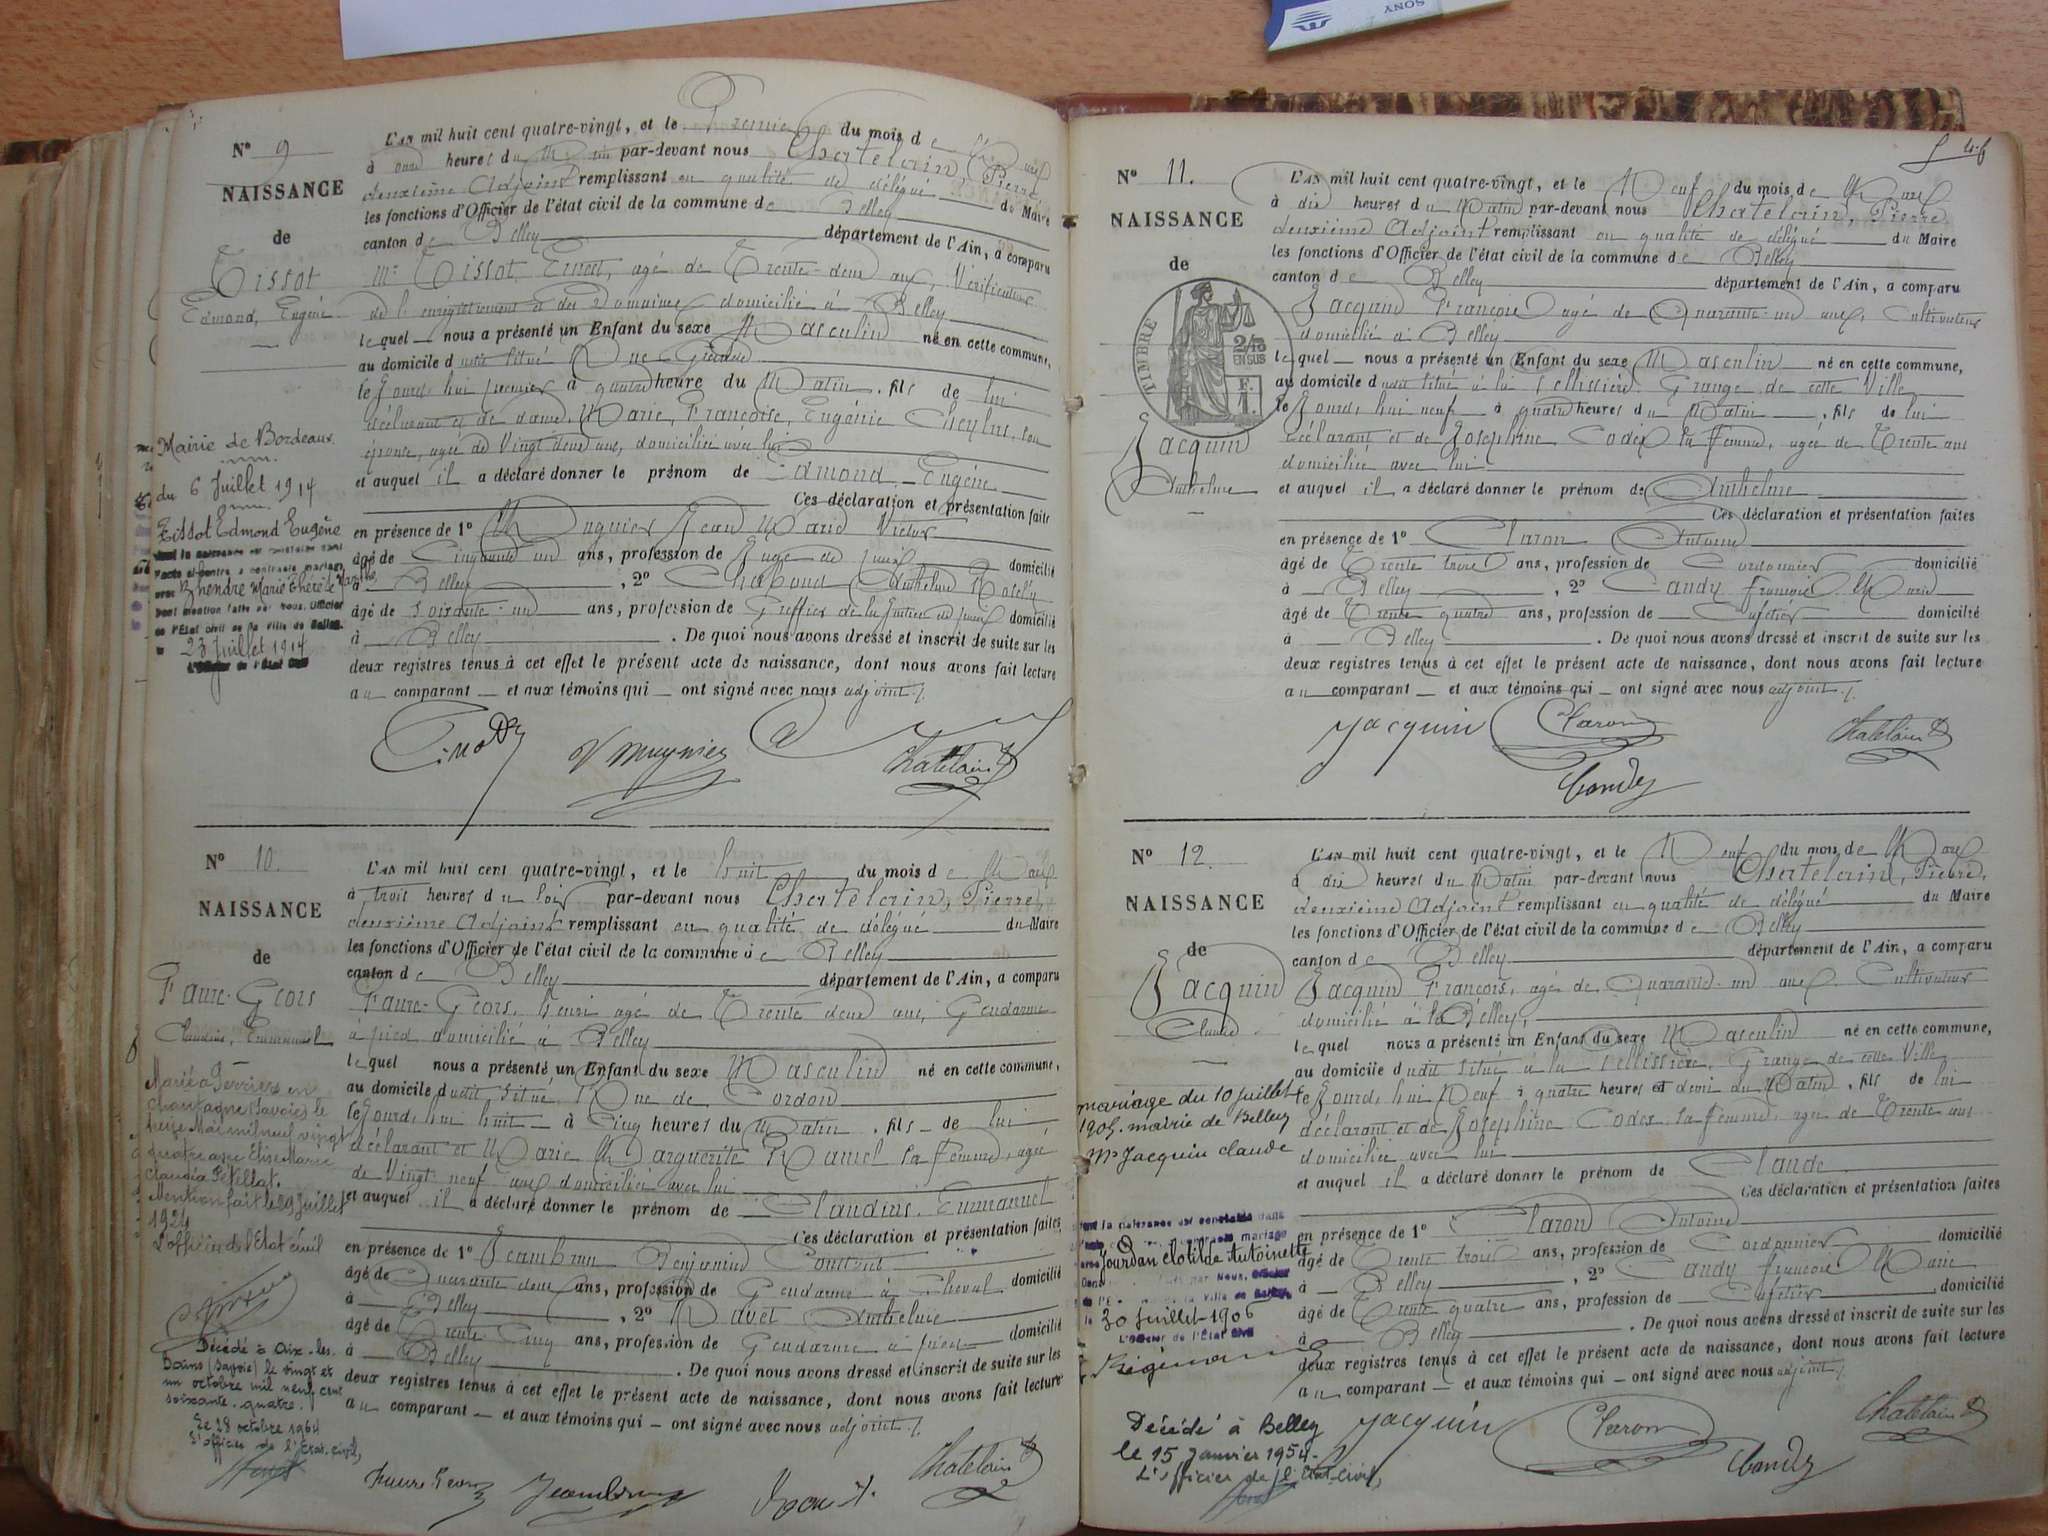 SONY
N° 9
NAISSANCE
de
Tissot
Edmond, Eugène
L'AN mil huit cent quatre-vingt, et le Premier du mois de
à onze heures du Matin par-devant nous Chatelain, Pierre
deuxième Adjoint remplissant en qualité de délégué du Maire
les fonctions d'Officier de l'état civil de la commune de Belley
canton de Belley département de l'Ain, a comparu
Mr Tissot, Ernest, agé de Trente-deux ans, Vérificateur
de l'enregistrement et des Domaines domicilié à Belley
lequel nous a présenté un Enfant du sexe Masculin né en cette commune,
au domicile dudit situé Rue
le Jourd'hui premier à quatre heure du Matin, fils de lui
déclarant et de dame, Marie, Françoise, Eugénie Cheylus, son
épouse, agée de Vingt deux ans, domiciliée avec lui
et auquel il a déclaré donner le prénom de Edmond Eugène
Ces déclaration et présentation faites
en présence de 1° Mugnier Jean Marie Victor
âgé de Cinquante un ans, profession de Juge de paix domicilié
à Belley, 2° Chaboud Anthelme
âgé de Soixante-un ans, profession de Greffier de la Justice de paix domicilié
à Belley. De quoi nous avons dressé et inscrit de suite sur les
deux registres tenus à cet effet le présent acte de naissance, dont nous avons fait lecture
au comparant et aux témoins qui ont signé avec nous adjoint ./.
Mairie de Bordeaux
du 6 Juillet 1914
Tissot Edmond Eugène
dont la naissance est constatée dans
l'acte ci-contre a contracté mariage
avec Marie Thérèse
Dont mention faite par nous, Officier
de l'Etat Civil de la Ville de Belley.
le 23 Juillet 1914
L'Officier de l'Etat Civil
V Mugnier
Chatelain P
N° 10.
NAISSANCE
de
Faure-Geors
Claudius, Emmanuel
L'AN mil huit cent quatre-vingt, et le huit du mois de Mars
à trois heures du soir par-devant nous Chatelain, Pierre,
deuxième Adjoint remplissant en qualité de délégué du Maire
les fonctions d'Officier de l'état civil de la commune de Belley
canton de Belley département de l'Ain, a comparu
Faure-Geors, henri agé de Trente deux ans, Gendarme
à pied domicilié à Belley
lequel nous a présenté un Enfant du sexe Masculin né en cette commune,
au domicile dudit situé Rue de Cordon
le Jourd'hui huit à Cinq heures du Matin, fils de lui
déclarant et Marie Marguerite Ramel sa femme, agée
de Vingt neuf ans domiciliée avec lui
et auquel il a déclaré donner le prénom de Claudius, Emmanuel
Ces déclaration et présentation faites
en présence de 1° Jeambrun Benjamin Constant
âgé de Quarante deux ans, profession de Gendarme à Cheval domicilié
à Belley, 2° Ravet Anthelme
âgé de Trente Cinq ans, profession de Gendarme à pied domicilié
à Belley. De quoi nous avons dressé et inscrit de suite sur les
deux registres tenus à cet effet le présent acte de naissance, dont nous avons fait lecture
au comparant et aux témoins qui ont signé avec nous adjoint ./.
Marié à Serrières en
Chautagne (Savoie) le
treize Mai mil neuf vingt
quatre avec Elise Marie
Claudia Petellat.
Mention fait le 9 Juillet
1924
L'officier de l'Etat civil
Décédé à Aix-les-
Bains (Savoie) le vingt et
un octobre mil neuf cent
soixante-quatre.
Le 28 octobre 1964
L'officier de l'Etat-civil,
Faure Geors
Jeambrun
Chatelain P
N° 11.
NAISSANCE
de
TIMBRE
2/10
EN SUS
Jacquin
Anthelme
L'AN mil huit cent quatre-vingt, et le Neuf du mois de Mars
à dix heures du Matin par-devant nous Chatelain, Pierre
deuxième Adjoint remplissant en qualité de délégué du Maire
les fonctions d'Officier de l'état civil de la commune de Belley
canton de Belley département de l'Ain, a comparu
Jacquin François agé de Quarante-un ans, Cultivateur
domicilié à Belley
lequel nous a présenté un Enfant du sexe Masculin né en cette commune,
au domicile dudit situé à la Pellissière, Grange de cette Ville
le Jourd'hui neuf à quatre heures du Matin, fils de lui
déclarant et de Josephine Codex sa femme, agée de Trente ans
domiciliée avec lui
et auquel il a déclaré donner le prénom de Anthelme
Ces déclaration et présentation faites
en présence de 1° Claron Antoine
âgé de Trente trois ans, profession de Cordonnier domicilié
à Belley, 2° Candy françois Marie
âgé de Trente quatre ans, profession de Cafetier domicilié
à Belley. De quoi nous avons dressé et inscrit de suite sur les
deux registres tenus à cet effet le présent acte de naissance, dont nous avons fait lecture
au comparant et aux témoins qui ont signé avec nous adjoint ./.
Jacquin Claron Chatelain P
Candy
N° 12.
NAISSANCE
de
Jacquin
Claude
L'AN mil huit cent quatre-vingt, et le Neuf du mois de Mars
à dix heures du Matin par-devant nous Chatelain, Pierre,
deuxième Adjoint remplissant en qualité de délégué du Maire
les fonctions d'Officier de l'état civil de la commune de Belley
canton de Belley département de l'Ain, a comparu
Jacquin François, agé de Quarante-un ans, Cultivateur
domicilié à Belley,
lequel nous a présenté un Enfant du sexe Masculin né en cette commune,
au domicile dudit situé à la Pellissière, Grange de cette Ville
le Jourd'hui Neuf à quatre heures et demi du Matin, fils de lui
déclarant et de Josephine Codex sa femme, agée de Trente ans
domiciliée avec lui
et auquel il a déclaré donner le prénom de Claude
Ces déclaration et présentation faites
en présence de 1° Claron Antoine
âgé de Trente trois ans, profession de Cordonnier domicilié
à Belley, 2° Candy françois Marie
âgé de Trente quatre ans, profession de Cafetier domicilié
à Belley. De quoi nous avons dressé et inscrit de suite sur les
deux registres tenus à cet effet le présent acte de naissance, dont nous avons fait lecture
au comparant et aux témoins qui ont signé avec nous adjoint ./.
mariage du 10 juillet
mairie de Belley
Mr Jacquin claude
dont la naissance est constatée dans
mariage
avec Jourdan clotilde Antoinette
par Nous, Officier
de la Ville de Belley,
le 30 Juillet 1906
L'Officier de l'Etat Civil
Décédé à Belley
le 15 Janvier 1954.
L'officier de l'Etat-civil,
Jacquin Claron Chatelain P
Candy